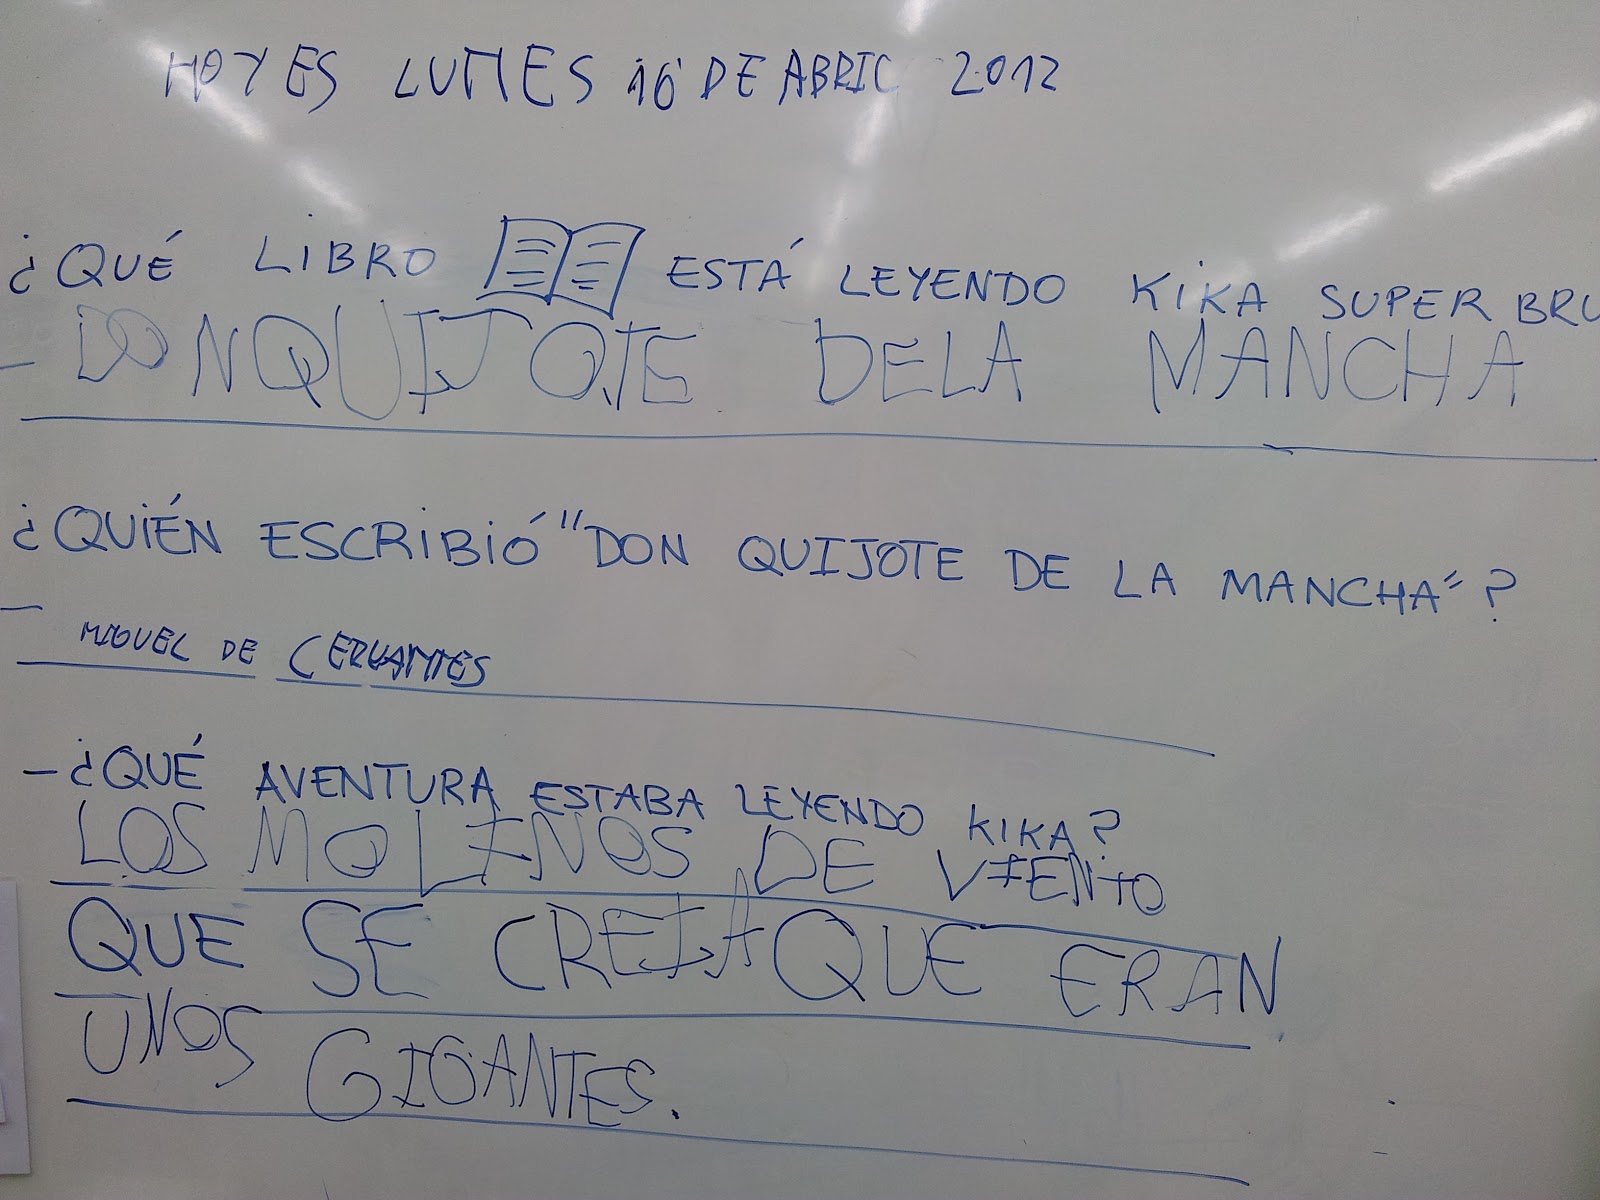 HOY ES LUNES 16 DE ABRIL 2012
¿QUÉ LIBRO ESTÁ LEYENDO KIKA SUPER BRU
- DON QUIJOTE DE LA MANCHA
¿QUIÉN ESCRIBIÓ "DON QUIJOTE DE LA MANCHA"?
- MIGUEL DE CERVANTES
- ¿QUÉ AVENTURA ESTABA LEYENDO KIKA?
LOS MOLINOS DE VIENTO
QUE SE CREIA QUE ERAN
UNOS GIGANTES.